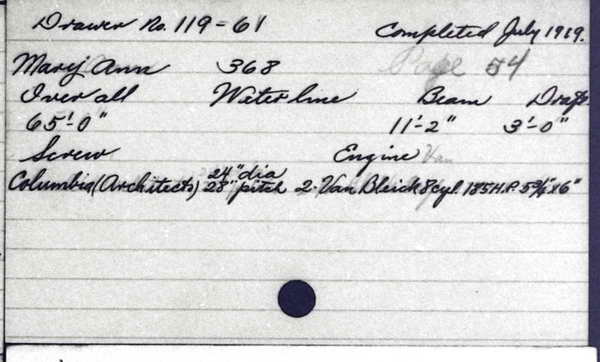 Drawer No. 119-61 Completed July 1919.
Mary Ann 368 Page 54
Over all Water line Beam Draft
65'-0" 11'-2" 3'-0"
Screw Engine Van
Columbia (Architects) 24" dia 28" pitch 2-Van Bleick 8 cyl. 185 H.P. 5¾"x6"